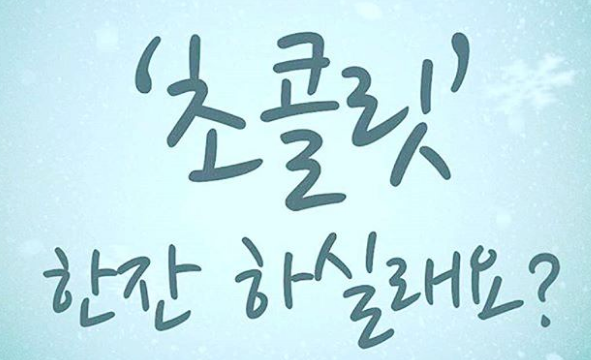 ‘초콜릿’
한잔 하실래요?